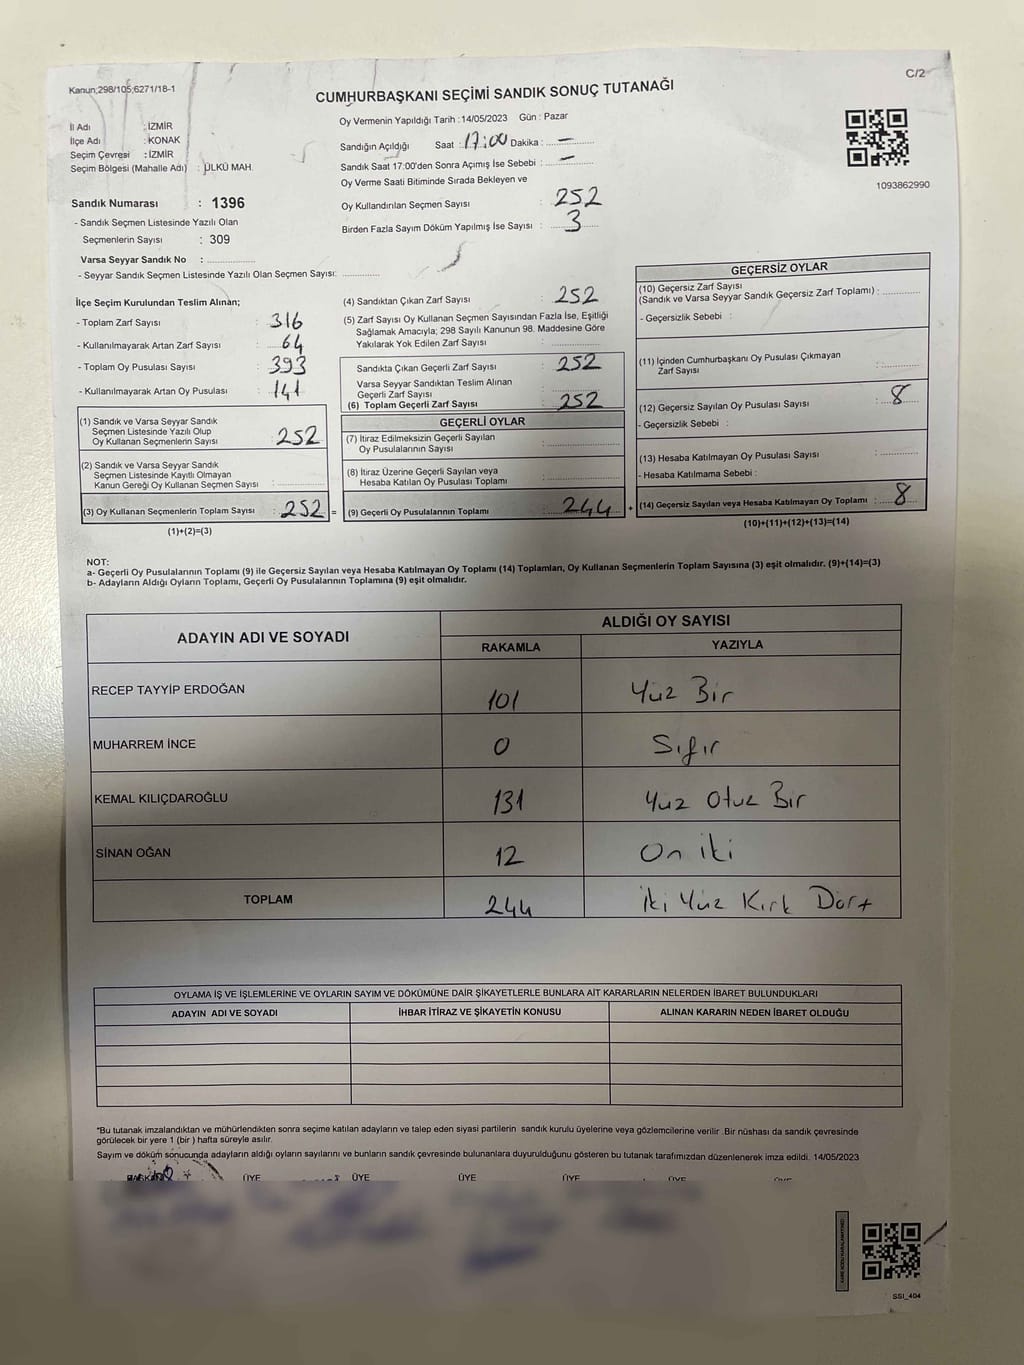 Kanun;298/105;6271/18-1
C/2
CUMHURBAŞKANI SEÇİMİ SANDIK SONUÇ TUTANAĞI
İl Adı : İZMİR
İlçe Adı : KONAK
Seçim Çevresi : İZMİR
Seçim Bölgesi (Mahalle Adı) : ÜLKÜ MAH.
Sandık Numarası : 1396
- Sandık Seçmen Listesinde Yazılı Olan
Seçmenlerin Sayısı : 309
Varsa Seyyar Sandık No :
- Seyyar Sandık Seçmen Listesinde Yazılı Olan Seçmen Sayısı:
Oy Vermenin Yapıldığı Tarih : 14/05/2023 Gün : Pazar
Sandığın Açıldığı Saat : 17:00 Dakika : —
Sandık Saat 17:00'den Sonra Açımış İse Sebebi : —
Oy Verme Saati Bitiminde Sırada Bekleyen ve
Oy Kullandırılan Seçmen Sayısı : 252
Birden Fazla Sayım Döküm Yapılmış İse Sayısı : 3
1093862990
İlçe Seçim Kurulundan Teslim Alınan;
- Toplam Zarf Sayısı : 316
- Kullanılmayarak Artan Zarf Sayısı : 64
- Toplam Oy Pusulası Sayısı : 393
- Kullanılmayarak Artan Oy Pusulası : 141
(1) Sandık ve Varsa Seyyar Sandık
Seçmen Listesinde Yazılı Olup
Oy Kullanan Seçmenlerin Sayısı : 252
(2) Sandık ve Varsa Seyyar Sandık
Seçmen Listesinde Kayıtlı Olmayan
Kanun Gereği Oy Kullanan Seçmen Sayısı :
(3) Oy Kullanan Seçmenlerin Toplam Sayısı : 252 =
(1)+(2)=(3)
(4) Sandıktan Çıkan Zarf Sayısı : 252
(5) Zarf Sayısı Oy Kullanan Seçmen Sayısından Fazla İse, Eşitliği
Sağlamak Amacıyla; 298 Sayılı Kanunun 98. Maddesine Göre
Yakılarak Yok Edilen Zarf Sayısı :
Sandıkta Çıkan Geçerli Zarf Sayısı : 252
Varsa Seyyar Sandıktan Teslim Alınan
Geçerli Zarf Sayısı :
(6) Toplam Geçerli Zarf Sayısı : 252
GEÇERLİ OYLAR
(7) İtiraz Edilmeksizin Geçerli Sayılan
Oy Pusulalarının Sayısı :
(8) İtiraz Üzerine Geçerli Sayılan veya
Hesaba Katılan Oy Pusulası Toplamı :
(9) Geçerli Oy Pusulalarının Toplamı : 244 +
GEÇERSİZ OYLAR
(10) Geçersiz Zarf Sayısı
(Sandık ve Varsa Seyyar Sandık Geçersiz Zarf Toplamı) :
- Geçersizlik Sebebi :
(11) İçinden Cumhurbaşkanı Oy Pusulası Çıkmayan
Zarf Sayısı :
(12) Geçersiz Sayılan Oy Pusulası Sayısı : 8
- Geçersizlik Sebebi :
(13) Hesaba Katılmayan Oy Pusulası Sayısı :
- Hesaba Katılmama Sebebi :
(14) Geçersiz Sayılan veya Hesaba Katılmayan Oy Toplamı : 8
(10)+(11)+(12)+(13)=(14)
NOT:
a- Geçerli Oy Pusulalarının Toplamı (9) ile Geçersiz Sayılan veya Hesaba Katılmayan Oy Toplamı (14) Toplamları, Oy Kullanan Seçmenlerin Toplam Sayısına (3) eşit olmalıdır. (9)+(14)=(3)
b- Adayların Aldığı Oyların Toplamı, Geçerli Oy Pusulalarının Toplamına (9) eşit olmalıdır.
ADAYIN ADI VE SOYADI ALDIĞI OY SAYISI
RAKAMLA YAZIYLA
RECEP TAYYİP ERDOĞAN 101 Yüz Bir
MUHARREM İNCE 0 Sıfır
KEMAL KILIÇDAROĞLU 131 Yüz Otuz Bir
SİNAN OĞAN 12 On iki
TOPLAM 244 iki Yüz Kırk Dört
OYLAMA İŞ VE İŞLEMLERİNE VE OYLARIN SAYIM VE DÖKÜMÜNE DAİR ŞİKAYETLERLE BUNLARA AİT KARARLARIN NELERDEN İBARET BULUNDUKLARI
ADAYIN ADI VE SOYADI İHBAR İTİRAZ VE ŞİKAYETİN KONUSU ALINAN KARARIN NEDEN İBARET OLDUĞU
*Bu tutanak imzalandıktan ve mühürlendikten sonra seçime katılan adayların ve talep eden siyasi partilerin sandık kurulu üyelerine veya gözlemcilerine verilir .Bir nüshası da sandık çevresinde
görülecek bir yere 1 (bir ) hafta süreyle asılır.
Sayım ve döküm sonucunda adayların aldığı oyların sayılarını ve bunların sandık çevresinde bulunanlara duyurulduğunu gösteren bu tutanak tarafımızdan düzenlenerek imza edildi. 14/05/2023
BAŞKAN ÜYE ÜYE ÜYE ÜYE ÜYE ÜYE
SSI_404